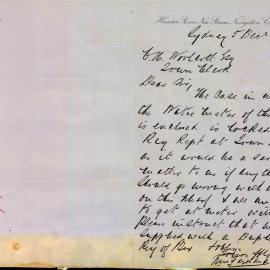 Hunter River New Steam Navigation C
Sydney 5 Decr
C. H. Woolcott Esq
Town Clerk
Dear Sir,
The Case in w
the Water meter of this
is enclosed is locked
Key kept at Town
as it would be a ser
matter to us if anyth
should go wrong with
on this Wharf I was
to get at meter wi
please instruct that we
supplied with a Dupl
Key of Box